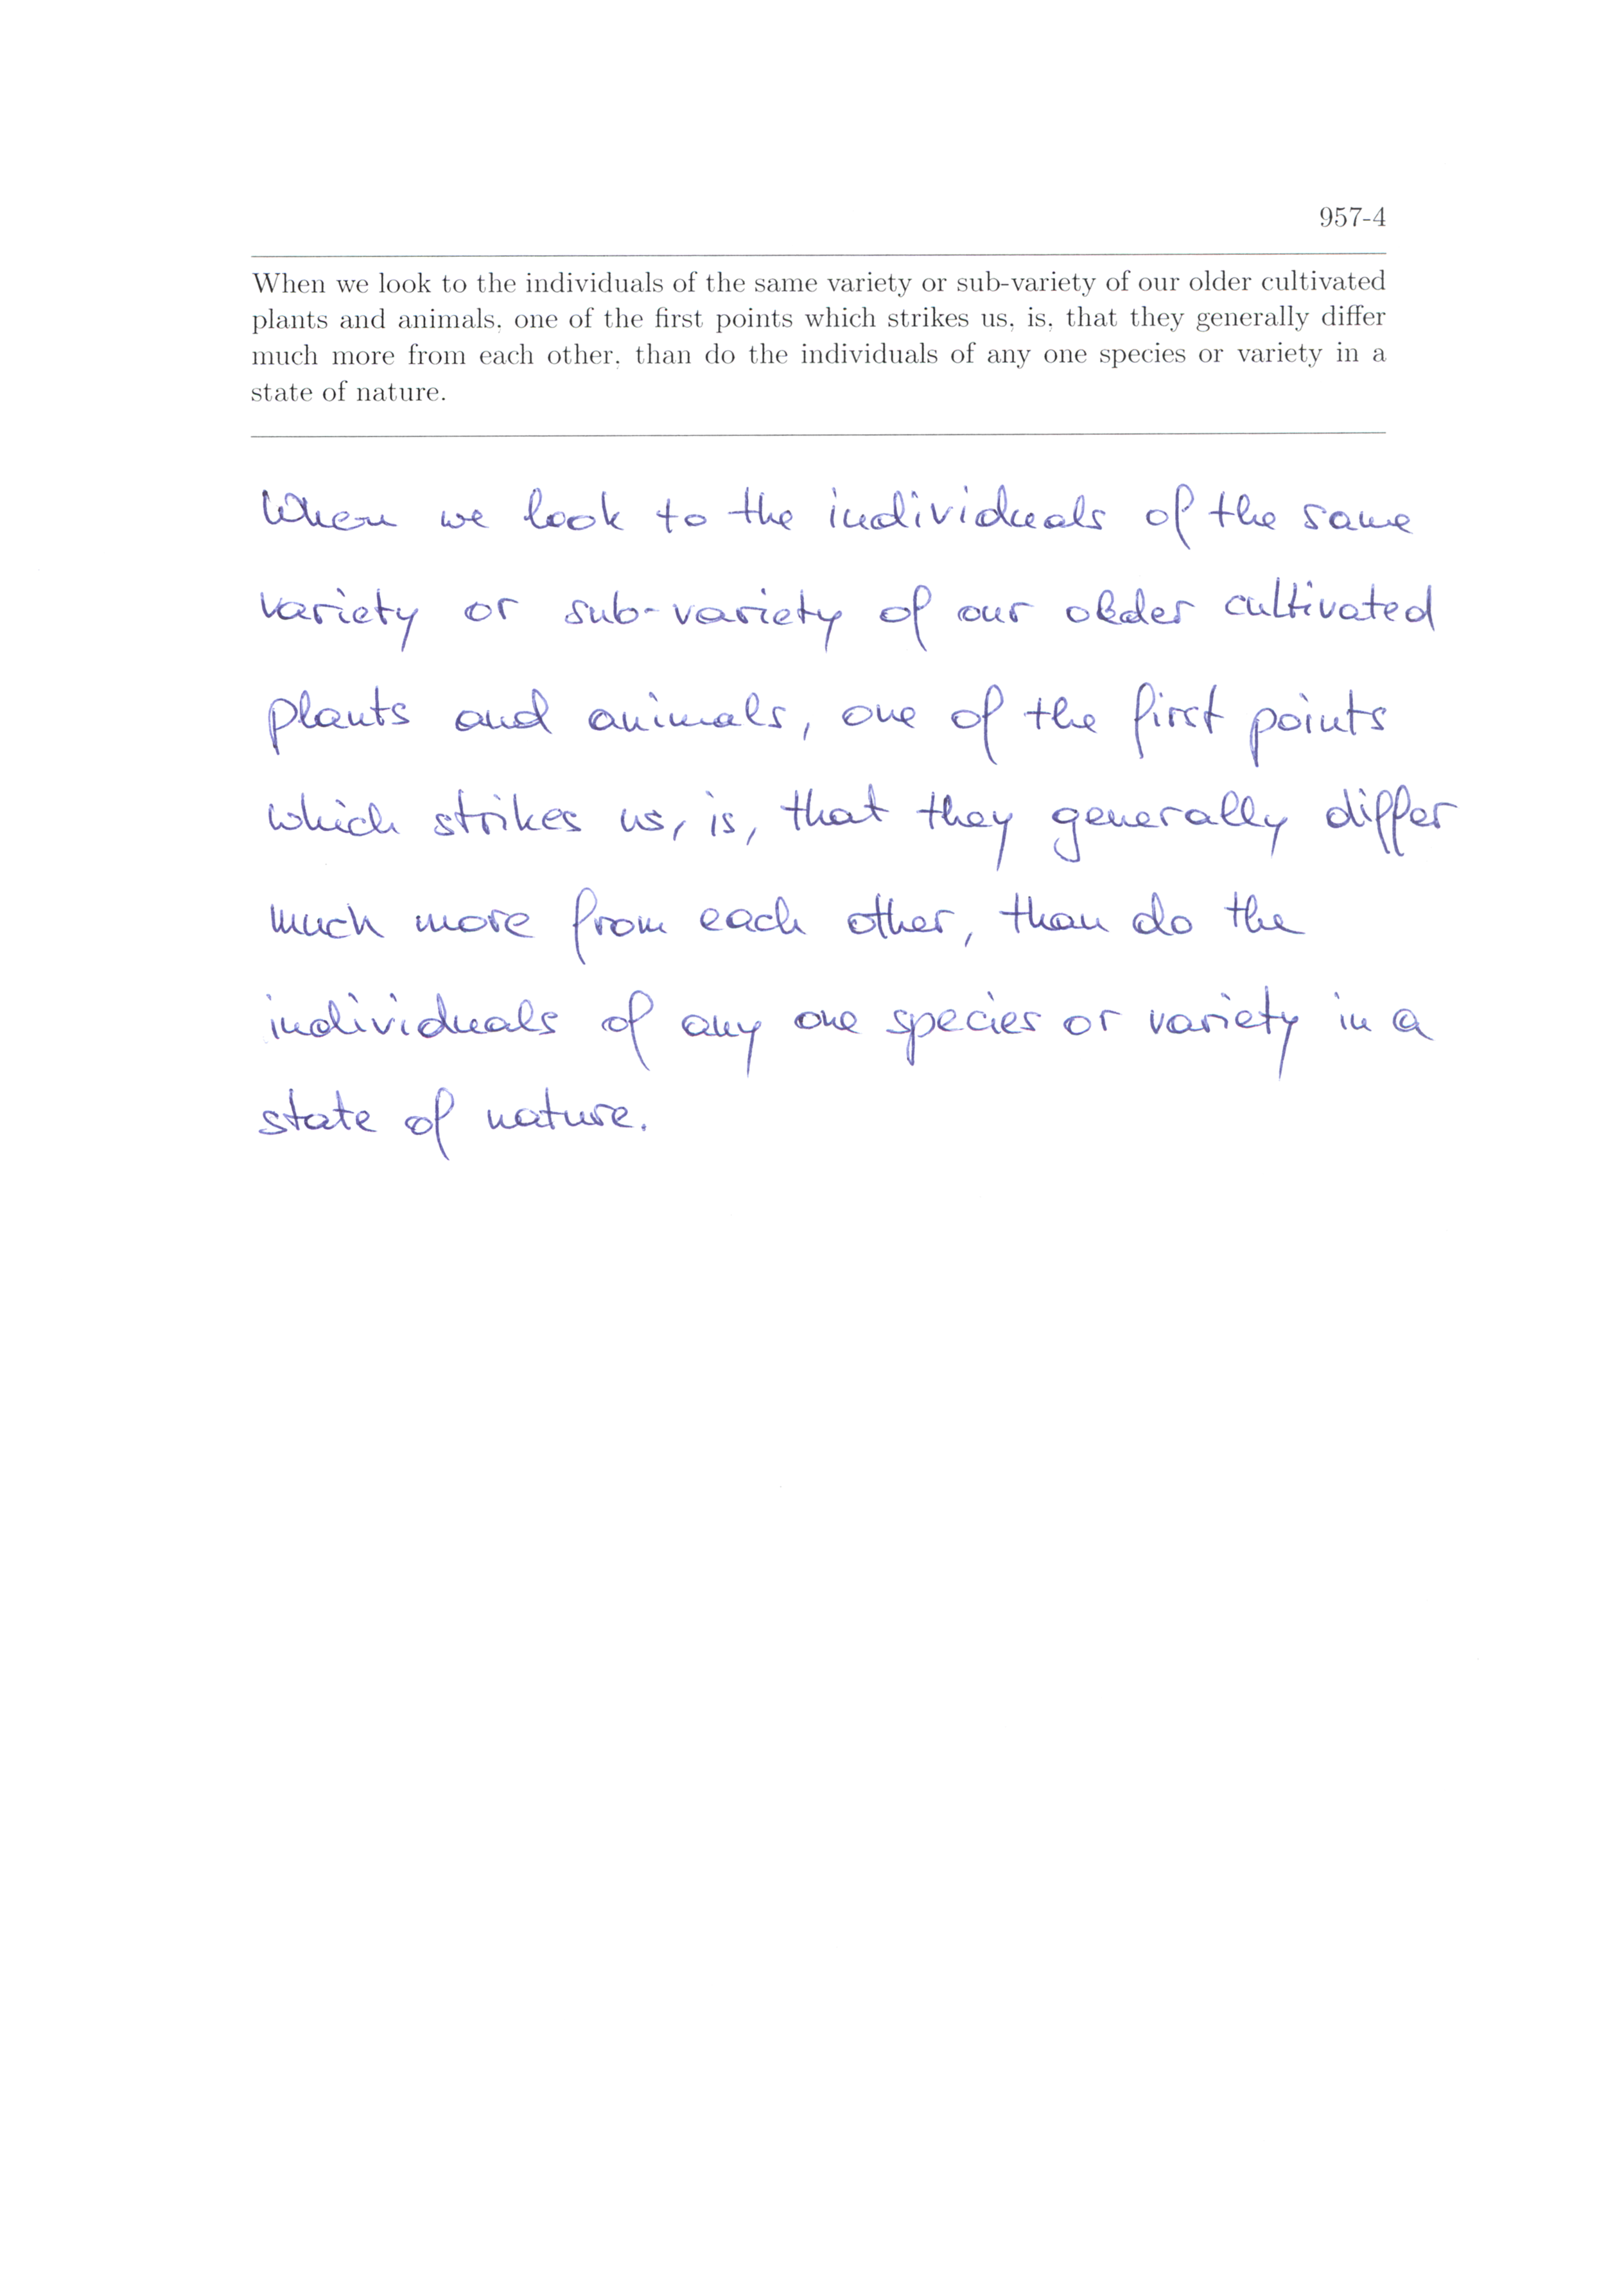 957-4
When we look to the individuals of the same variety or sub-variety of our older cultivated
plants and animals, one of the first points which strikes us, is, that they generally differ
much more from each other, than do the individuals of any one species or variety in a
state of nature.
When we look to the individuals of the same
variety or sub-variety of our older cultivated
plants and animals, one of the first points
which strikes us, is, that they generally differ
much more from each other, than do the
individuals of any one species or variety in a
state of nature.